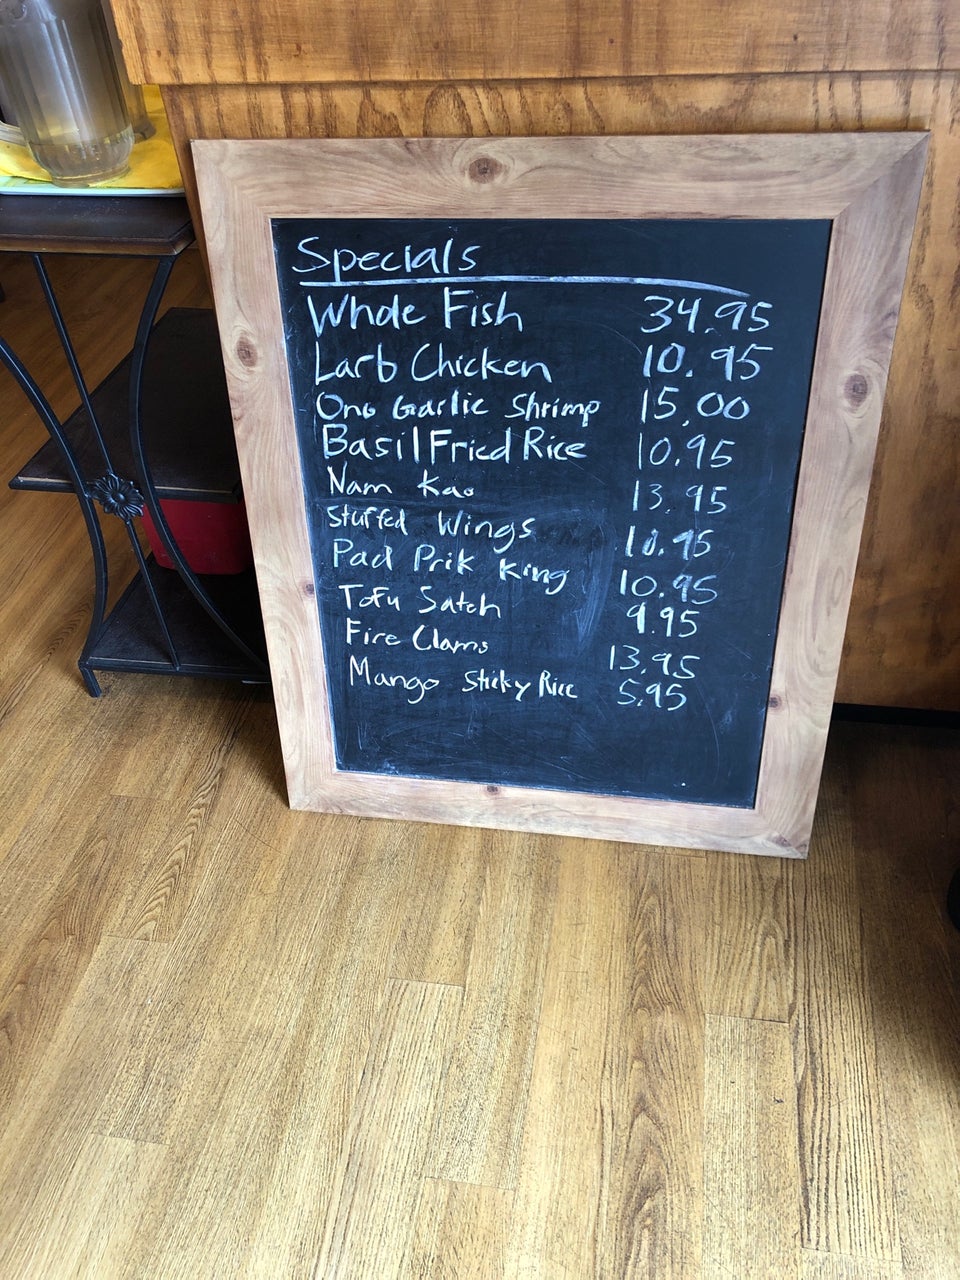 Specials
Whole Fish 34.95
Larb Chicken 10.95
Ono Garlic Shrimp 15.00
Basil Fried Rice 10.95
Nam Kao 13.95
Stuffed Wings 10.95
Pad Prik King 10.95
Tofu Sateh 9.95
Fire Clams 13.95
Mango Sticky Rice 5.95